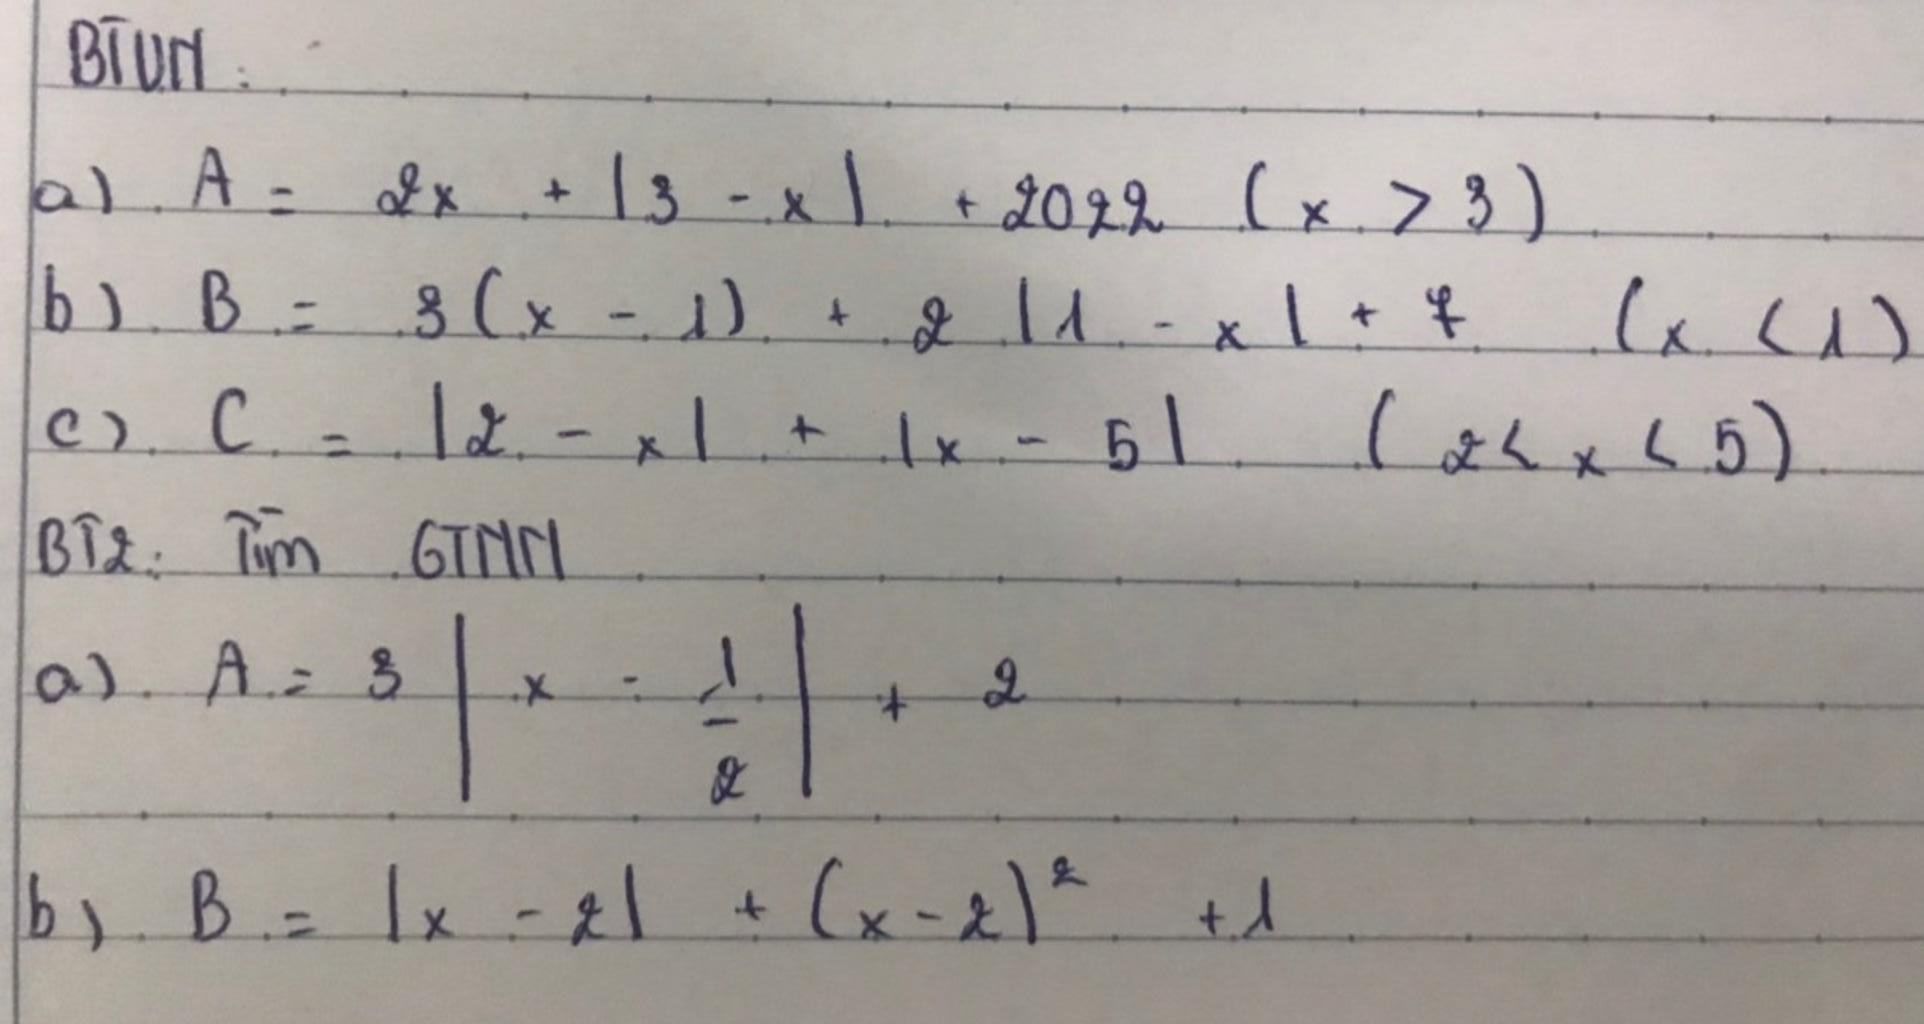 BTVN:
a) A = 2x + |3 - x| + 2022 (x > 3)
b) B = 3(x - 1) + 2 |1 - x| + 7 (x < 1)
c) C = |2 - x| + |x - 5| (2 < x < 5)
BT2: Tìm GTNN
a) A = 3 | x - 1/2 | + 2
b) B = |x - 2| + (x - 2)² + 1